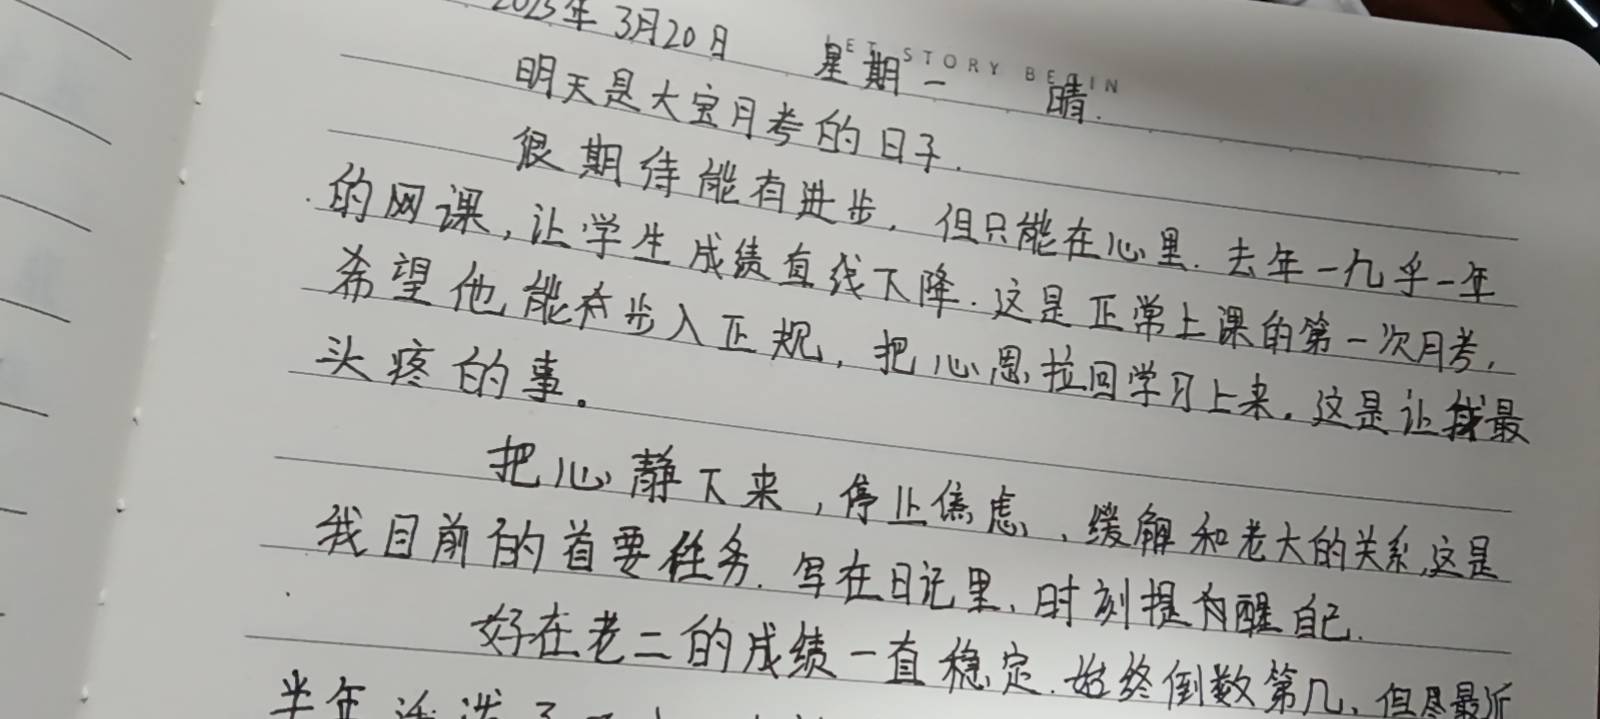 2023年 3月20日 星期一 晴.
LET STORY BEGIN
明天是大宝月考的日子.
很期待能有进步, 但只能在心里. 去年一九乎一年
的网课, 让学生成绩直线下降. 这是正常上课的第一次月考,
希望他能步入正规, 把心思拉回学习上来. 这是让我最
头疼的事。
把心静下来, 停止焦虑, 缓解和老大的关系, 这是
我目前的首要任务. 写在日记里, 时刻提醒自己.
好在老二的成绩一直稳定. 始终倒数第几, 但是最近
半年活泼了